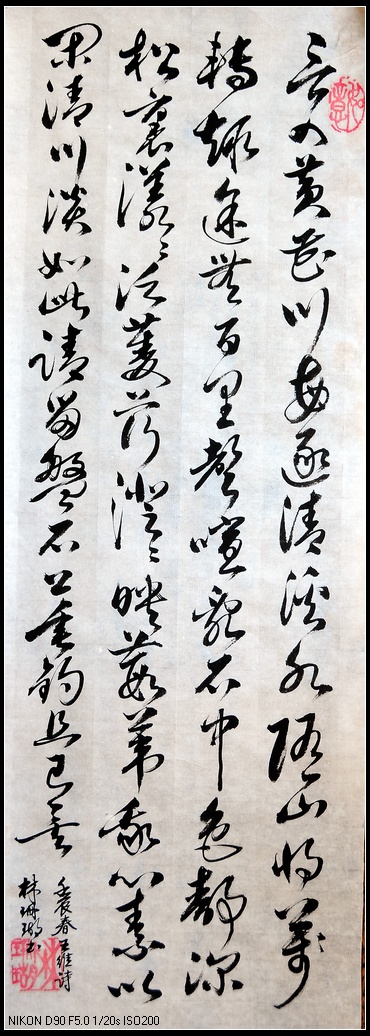 言入黄花川每逐清溪水随山将萬
轉趣途無百里聲喧亂石中色靜深
松裏漾〻泛菱荇澄〻映葭葦我心素以
閑清川淡如此請留盤石上垂钓且已矣
壬辰春王維詩
林珊瑚书
NIKON D90 F5.0 1/20s ISO200